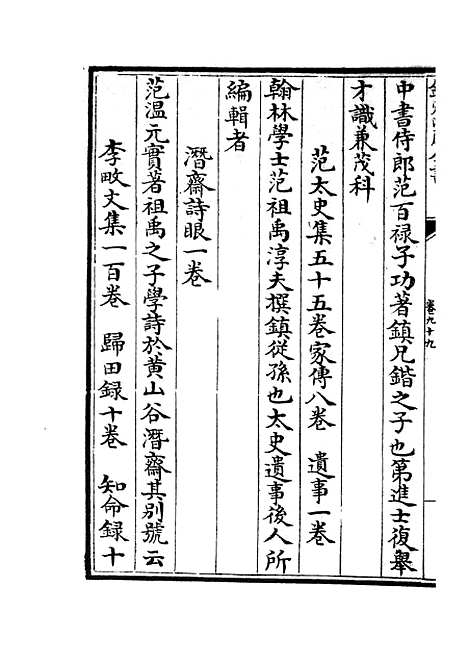 卷九十九
中書侍郎范百禄子功著鎮兄鍇之子也第進士復舉
才識兼茂科
范太史集五十五卷家傳八卷　遺事一卷
翰林學士范祖禹淳夫撰鎮從孫也太史遺事後人所
編輯者
潛齋詩眼一卷
范溫元實著祖禹之子學詩於黄山谷潛齋其别號云
李畋文集一百卷　歸田録十卷　知命録十